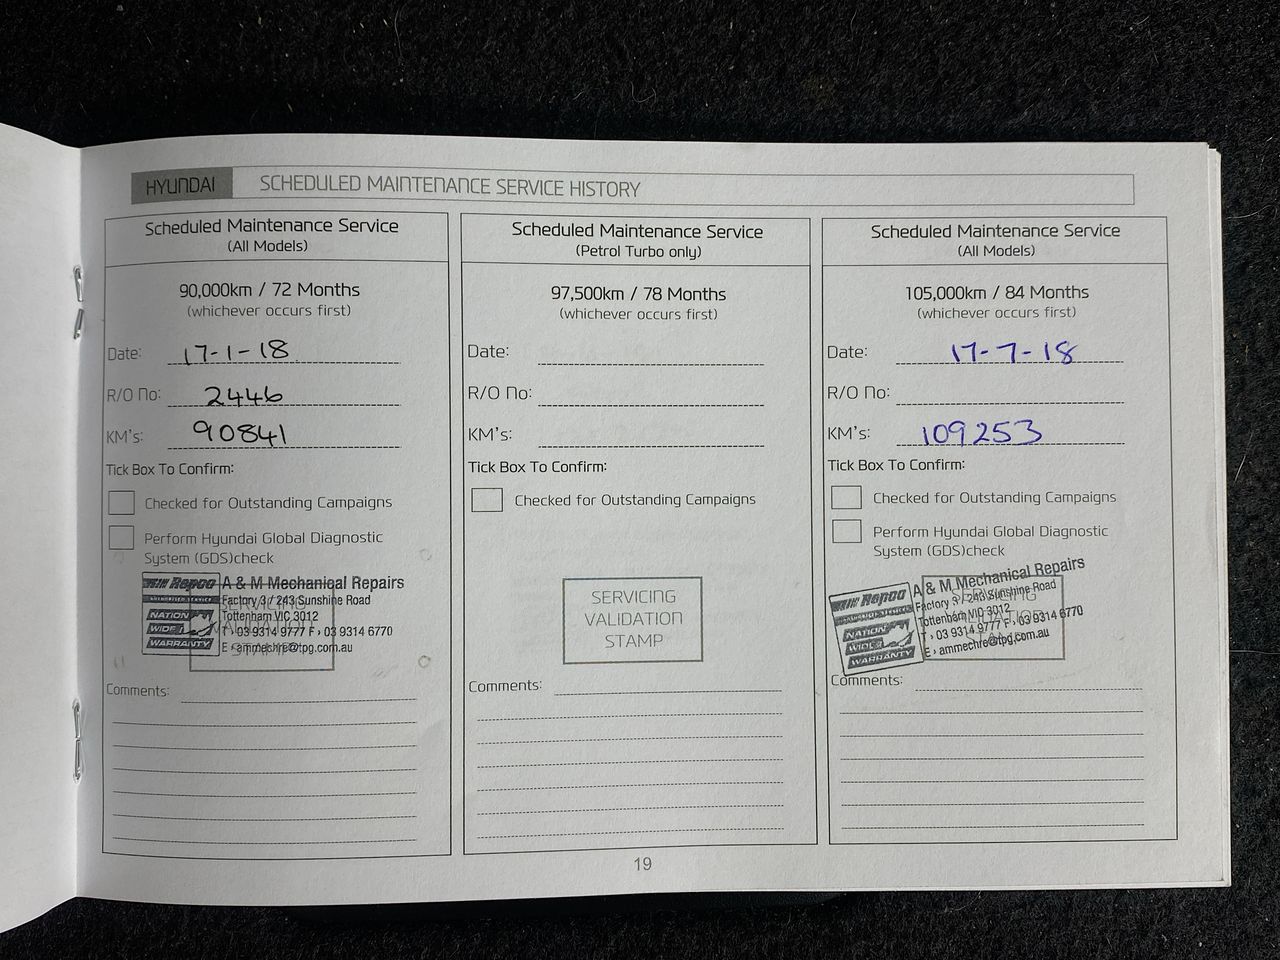 HYUNDAI SCHEDULED MAINTENANCE SERVICE HISTORY
Scheduled Maintenance Service
(All Models)
90,000km / 72 Months
(whichever occurs first)
Date: 17-1-18
R/O No: 2446
KM's: 90841
Tick Box To Confirm:
Checked for Outstanding Campaigns
Perform Hyundai Global Diagnostic
System (GDS)check
SERVICING
VALIDATION
STAMP
Repco
AUTHORISED SERVICE
NATION
WIDE
WARRANTY
A & M Mechanical Repairs
Factory 3 / 243 Sunshine Road
Tottenham VIC 3012
T › 03 9314 9777 F › 03 9314 6770
E › ammechre@tpg.com.au
Comments:
Scheduled Maintenance Service
(Petrol Turbo only)
97,500km / 78 Months
(whichever occurs first)
Date:
R/O No:
KM's:
Tick Box To Confirm:
Checked for Outstanding Campaigns
SERVICING
VALIDATION
STAMP
Comments:
Scheduled Maintenance Service
(All Models)
105,000km / 84 Months
(whichever occurs first)
Date: 17-7-18
R/O No:
KM's: 109253
Tick Box To Confirm:
Checked for Outstanding Campaigns
Perform Hyundai Global Diagnostic
System (GDS)check
SERVICING
VALIDATION
STAMP
Repco
NATION
WIDE
WARRANTY
A & M Mechanical Repairs
Factory 3 / 243 Sunshine Road
Tottenham VIC 3012
T › 03 9314 9777 F › 03 9314 6770
E › ammechre@tpg.com.au
Comments:
19